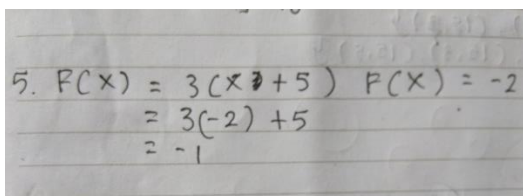 5. F(X) = 3(X + 5) F(X) = -2
= 3(-2) + 5
= -1